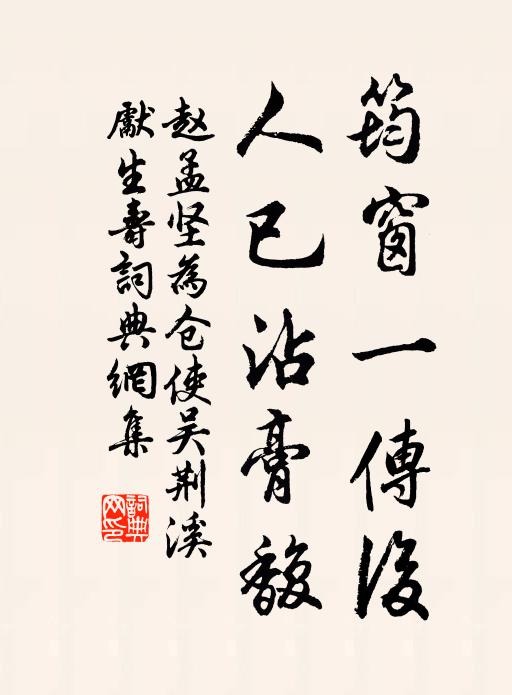 筠窗一傳後
人已沾膏馥
赵孟坚為仓使吴荆溪
獻生壽詞典網集
詞典
网印